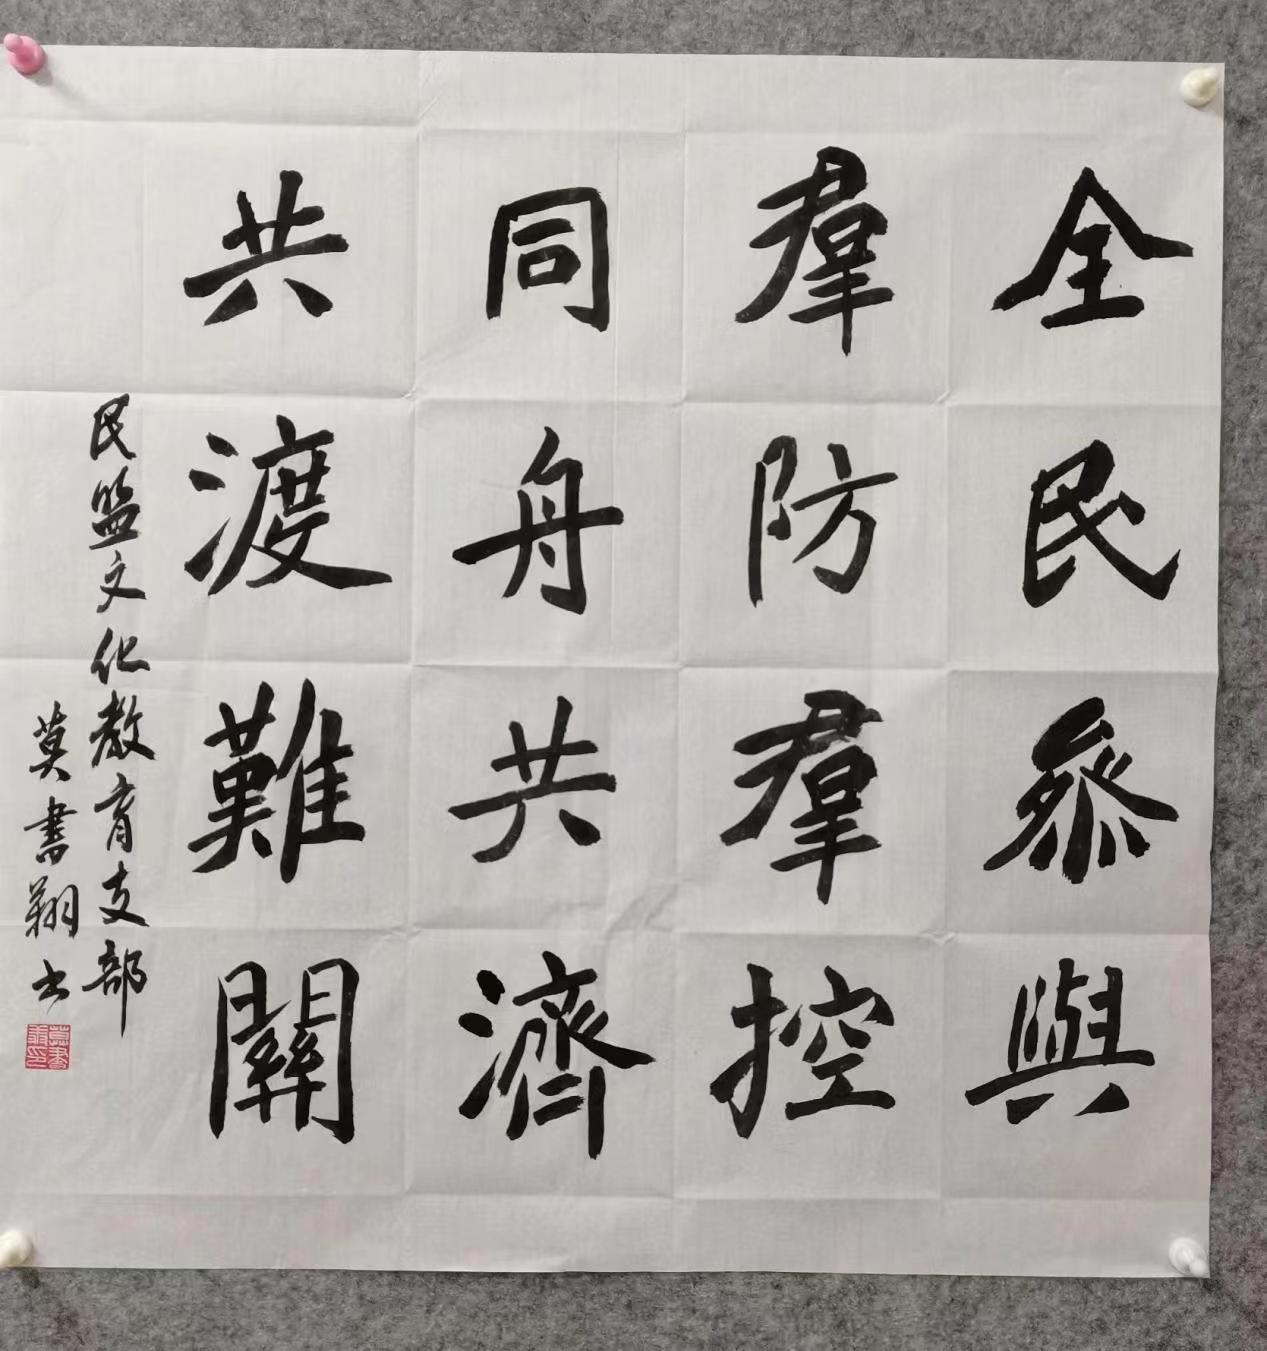 全民叅與
羣防羣控
同舟共濟
共渡難關
民盟文化教育支部
莫書翔书